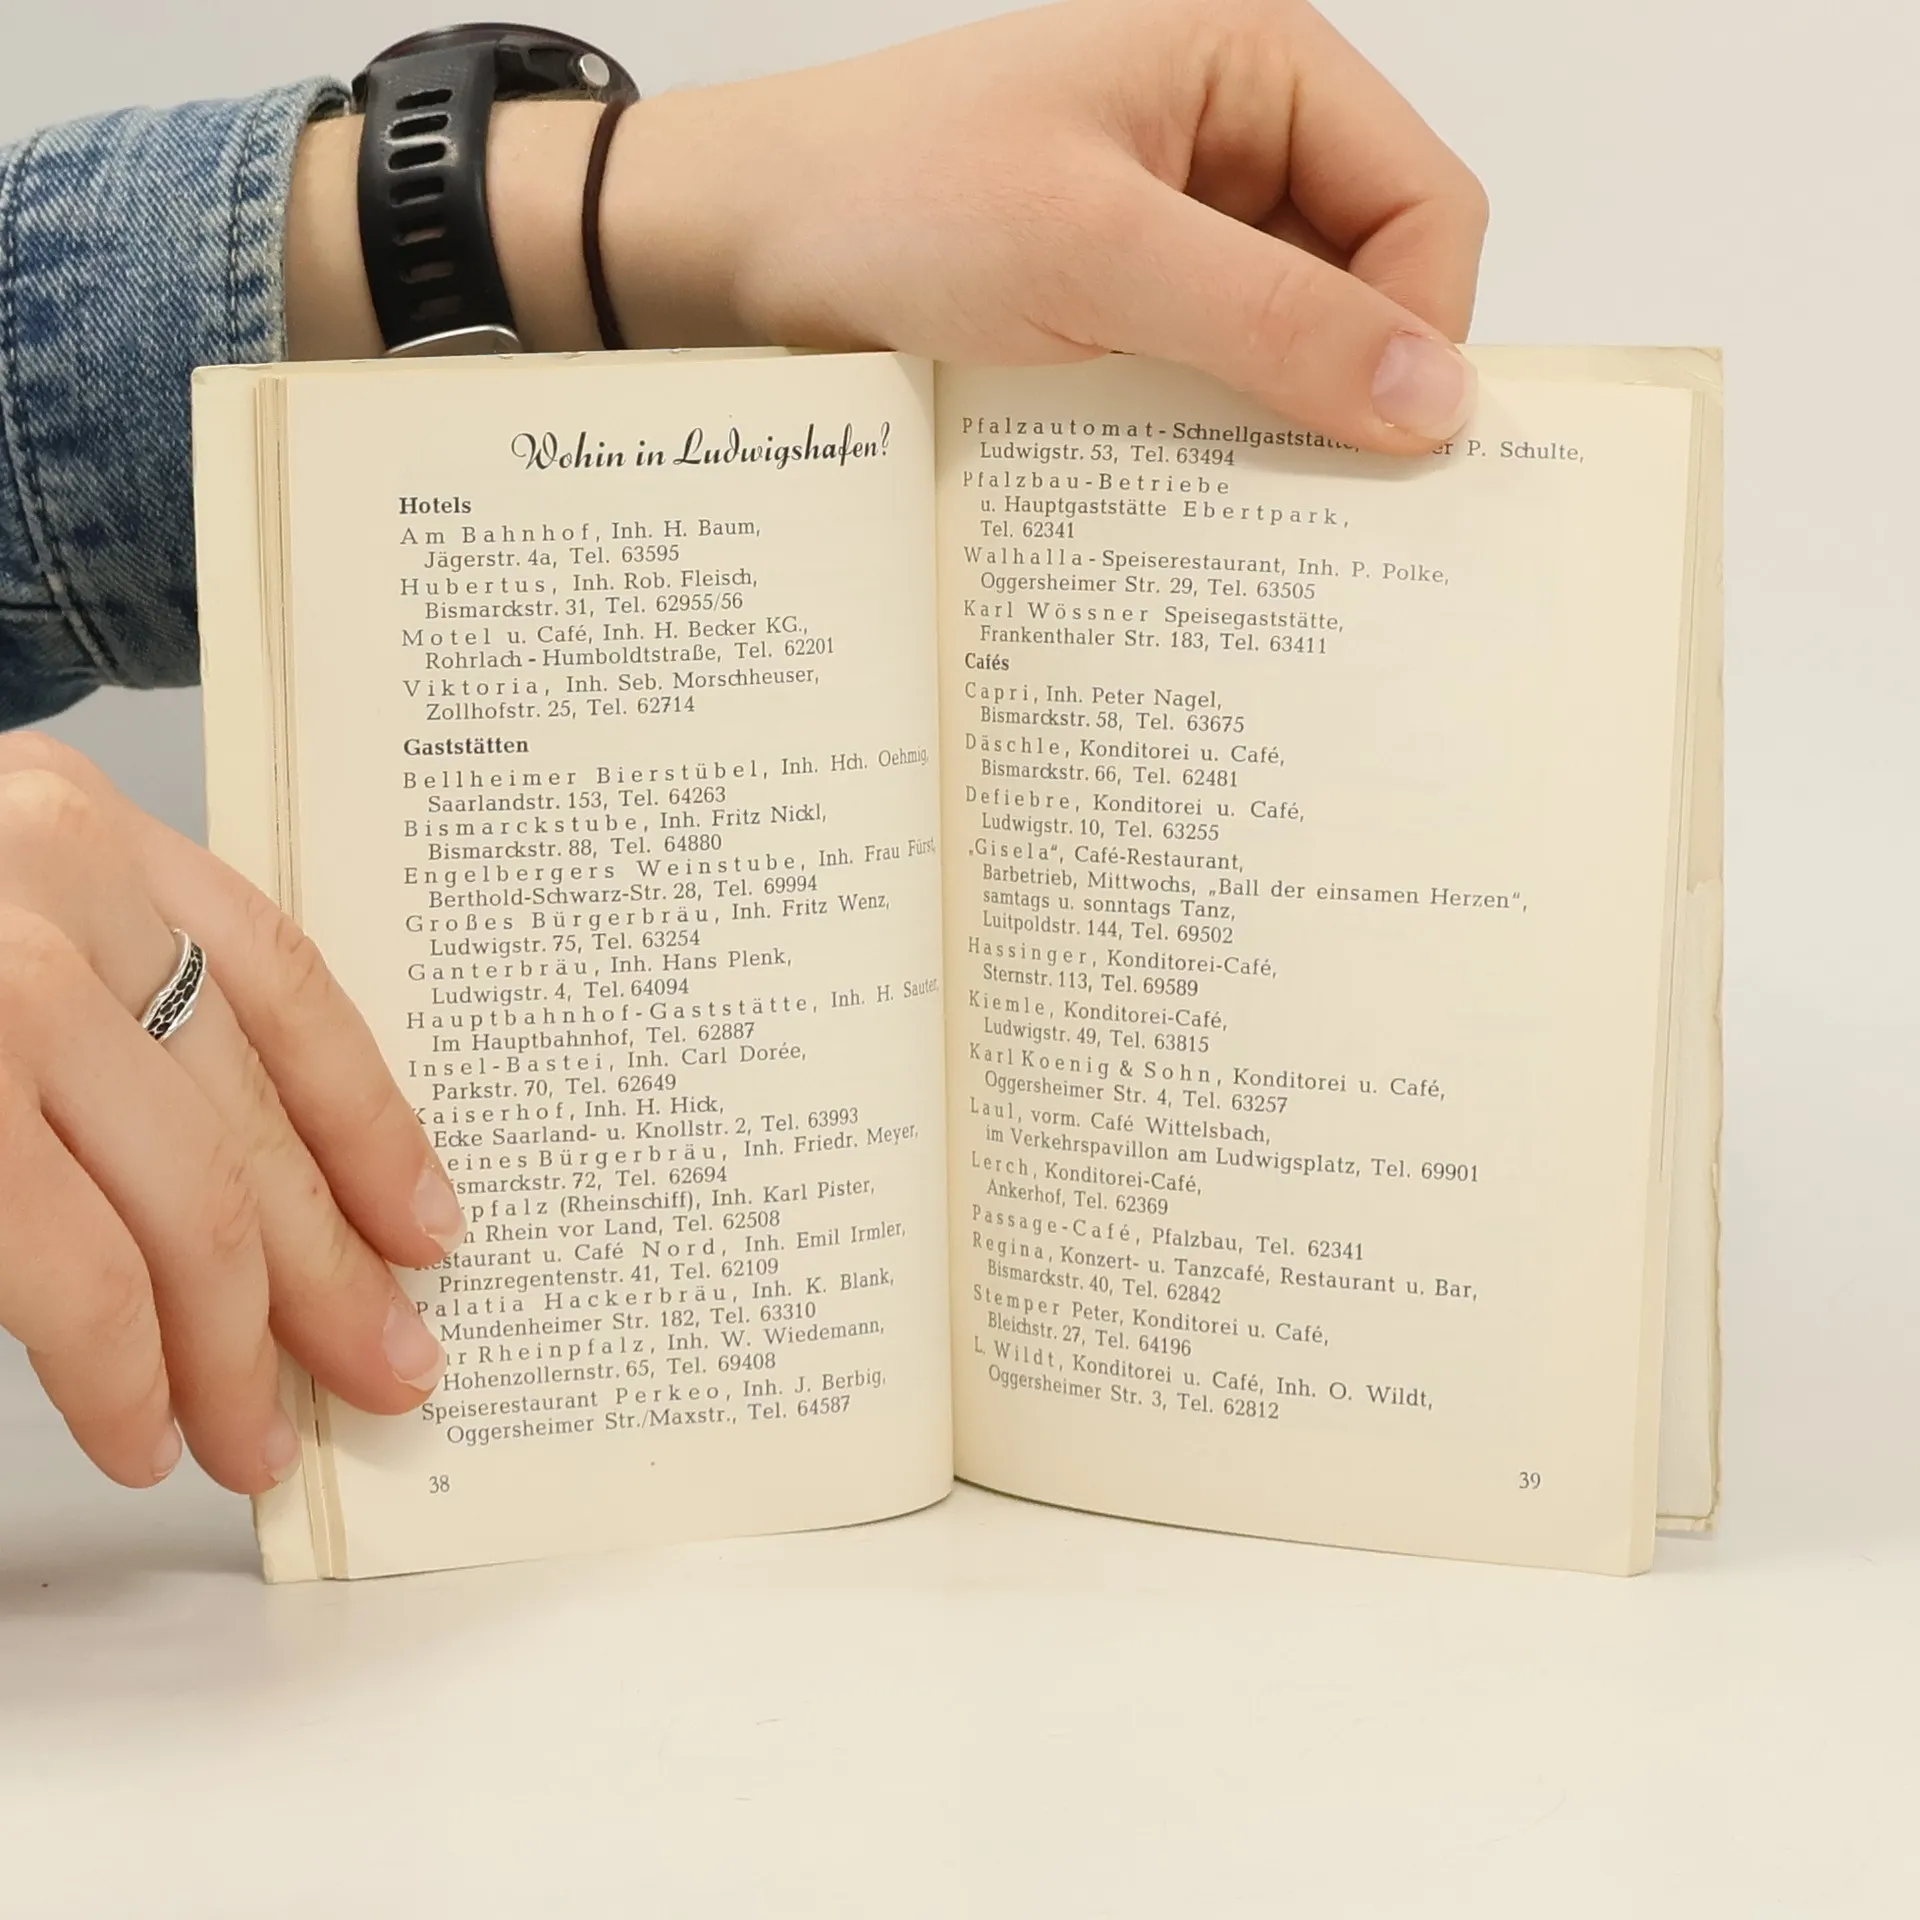 Wohin in Ludwigshafen?
Hotels
Am Bahnhof, Inh. H. Baum,
Jägerstr. 4a, Tel. 63595
Hubertus, Inh. Rob. Fleisch,
Bismarckstr. 31, Tel. 62955/56
Motel u. Café, Inh. H. Becker KG.,
Rohrlach-Humboldtstraße, Tel. 62201
Viktoria, Inh. Seb. Morschheuser,
Zollhofstr. 25, Tel. 62714
Gaststätten
Bellheimer Bierstübel, Inh. Hch. Oehmig,
Saarlandstr. 153, Tel. 64263
Bismarckstube, Inh. Fritz Nickl,
Bismarckstr. 88, Tel. 64880
Engelbergers Weinstube, Inh. Frau Fürst,
Berthold-Schwarz-Str. 28, Tel. 69994
Großes Bürgerbräu, Inh. Fritz Wenz,
Ludwigstr. 75, Tel. 63254
Ganterbräu, Inh. Hans Plenk,
Ludwigstr. 4, Tel. 64094
Hauptbahnhof-Gaststätte, Inh. H. Sauter,
Im Hauptbahnhof, Tel. 62887
Insel-Bastei, Inh. Carl Dorée,
Parkstr. 70, Tel. 62649
Kaiserhof, Inh. H. Hick,
Ecke Saarland- u. Knollstr. 2, Tel. 63993
eines Bürgerbräu, Inh. Friedr. Meyer,
ismarckstr. 72, Tel. 62694
pfalz (Rheinschiff), Inh. Karl Pister,
Rhein vor Land, Tel. 62508
estaurant u. Café Nord, Inh. Emil Irmler,
Prinzregentenstr. 41, Tel. 62109
Palatia Hackerbräu, Inh. K. Blank,
Mundenheimer Str. 182, Tel. 63310
ur Rheinpfalz, Inh. W. Wiedemann,
Hohenzollernstr. 65, Tel. 69408
Speiserestaurant Perkeo, Inh. J. Berbig,
Oggersheimer Str./Maxstr., Tel. 64587
38
Pfalzautomat-Schnellgaststätte, er P. Schulte,
Ludwigstr. 53, Tel. 63494
Pfalzbau-Betriebe
u. Hauptgaststätte Ebertpark,
Tel. 62341
Walhalla-Speiserestaurant, Inh. P. Polke,
Oggersheimer Str. 29, Tel. 63505
Karl Wössner Speisegaststätte,
Frankenthaler Str. 183, Tel. 63411
Cafés
Capri, Inh. Peter Nagel,
Bismarckstr. 58, Tel. 63675
Däschle, Konditorei u. Café,
Bismarckstr. 66, Tel. 62481
Defiebre, Konditorei u. Café,
Ludwigstr. 10, Tel. 63255
„Gisela“, Café-Restaurant,
Barbetrieb, Mittwochs, „Ball der einsamen Herzen“,
samtags u. sonntags Tanz,
Luitpoldstr. 144, Tel. 69502
Hassinger, Konditorei-Café,
Sternstr. 113, Tel. 69589
Kiemle, Konditorei-Café,
Ludwigstr. 49, Tel. 63815
Karl Koenig & Sohn, Konditorei u. Café,
Oggersheimer Str. 4, Tel. 63257
Laul, vorm. Café Wittelsbach,
im Verkehrspavillon am Ludwigsplatz, Tel. 69901
Lerch, Konditorei-Café,
Ankerhof, Tel. 62369
Passage-Café, Pfalzbau, Tel. 62341
Regina, Konzert- u. Tanzcafé, Restaurant u. Bar,
Bismarckstr. 40, Tel. 62842
Stemper Peter, Konditorei u. Café,
Bleichstr. 27, Tel. 64196
L. Wildt, Konditorei u. Café, Inh. O. Wildt,
Oggersheimer Str. 3, Tel. 62812
39